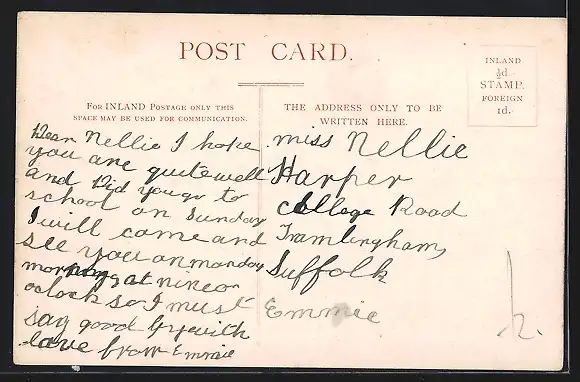 POST CARD.
INLAND
½d.
STAMP.
FOREIGN
1d.
FOR INLAND POSTAGE ONLY THIS
SPACE MAY BE USED FOR COMMUNICATION.
THE ADDRESS ONLY TO BE
WRITTEN HERE.
Dear Nellie I hope
you are quite well
and Did you go to
school on Sunday
I will come and
see you on monday
morning at nine o
oclock so I must
say good bye with
love from Emmie
miss Nellie
Harper
College Road
Framlingham,
Suffolk
Emmie